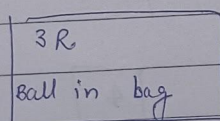 3 R
Ball in bag